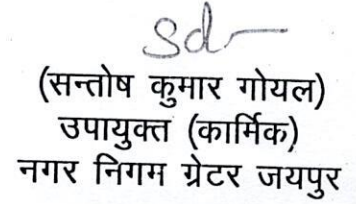 Sd-
(सन्तोष कुमार गोयल)
उपायुक्त (कार्मिक)
नगर निगम ग्रेटर जयपुर